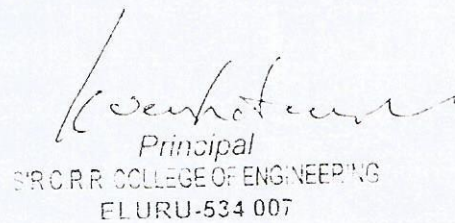 Principal
SIR C.R.R. COLLEGE OF ENGINEERING
ELURU-534 007